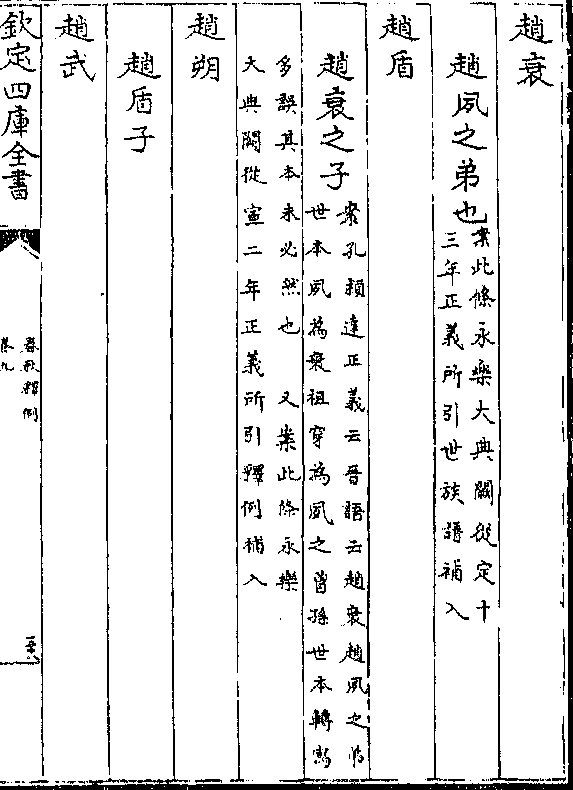 趙衰
趙夙之弟也案此條永樂大典闕從定十
三年正義所引世族譜補入
趙盾
趙衰之子案孔穎達正義云晉語云趙衰趙夙之弟
世本夙為衰祖穿為夙之曾孫世本轉寫
多誤其本未必然也 又案此條永樂
大典闕從宣二年正義所引釋例補入
趙朔
趙盾子
趙武
欽定四庫全書
春秋釋例
卷九